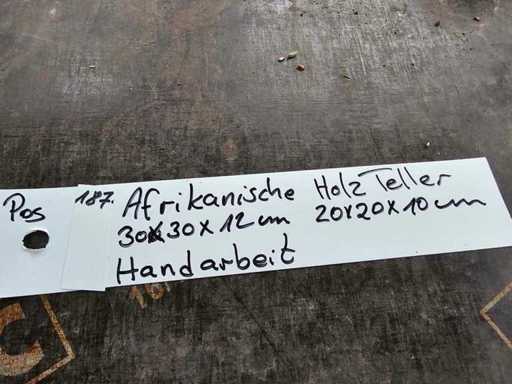 Pos 187. Afrikanische Holz Teller
30x30x12cm 20x20x10cm
Handarbeit